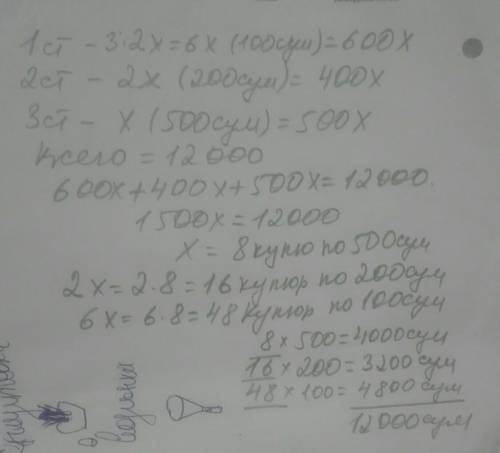 1ст - 3·2x=6x (100сум)=600x
2ст - 2x (200сум)= 400x
3ст - x (500сум)=500x
Всего = 12000
600x+400x+500x=12000.
1500x=12000
x = 8купюр по 500сум
2x=2·8=16купюр по 200сум
6x=6·8=48купюр по 100сум
8×500=4000сум
16×200=3200сум
48×100=4800сум
12000сум